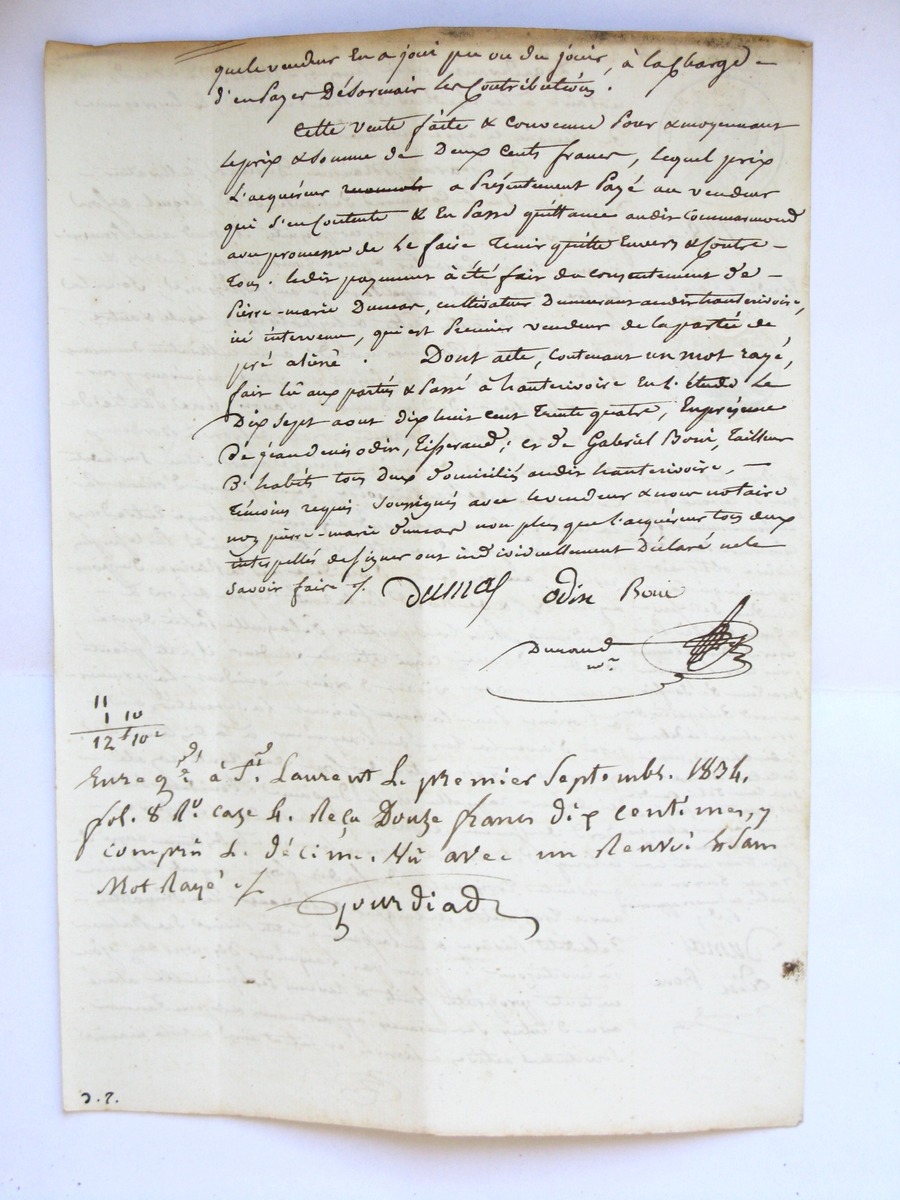 que le vendeur en a joui pu ou du jouir, à la charge
d'en Payer Désormais les Contributions.
Cette vente faite & convenue Pour & moyennant
le prix & Somme de Deux cents francs, lequel prix
L'acquéreur a Présentement Payé au vendeur
qui s'en Contente & En Passe quittance audit Commarmond
avec promesse de le faire Tenir quitte Envers & Contre
Tous. ledit payement a été fait du consentement de
Pierre-marie Dumas, cultivateur Demeurant audit hauterivoire,
ici intervenu, qui est Premier vendeur de la partie de
pré aliéné. Dont acte, Contenant un mot rayé,
fait lû aux parties & Passé à hauterivoire En l'étude Le
Dix Sept aout dix huit cent Trente quatre, En présence
de jean denis odin, Tisserand; et de Gabriel Boui, Tailleur
D'habits tous deux domiciliés audit hauterivoire,
Témoins requis Soussignés avec le vendeur & nous notaire
non pierre-marie dumas non plus que l'acquéreur tous deux
interpellés de signer ont individuellement Déclaré ne le
Savoir faire ./.
Dumas odin Boui
Durand
n.re
11
1 10
12 f 10 c
Enregé. à St. Laurent le premier Septembre. 1834.
fol. 8 Ro. case 4. Reçu Douze francs dix centimes, y
compris le décime. Vû avec un Renvoi & sans
Mot Rayé ./.
Gourdiad